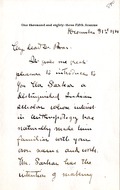 One thousand and eighty-three Fifth Avenue
December 31st 19
My dear Dr. Boas:
It gives me great
pleasure to introduce to
you Mr. Parker a
distinguished Indian
scholar whose interest
in Anthropology has
naturally made him
familiar with your
own name and work
Mr. Parker has the
intention of making